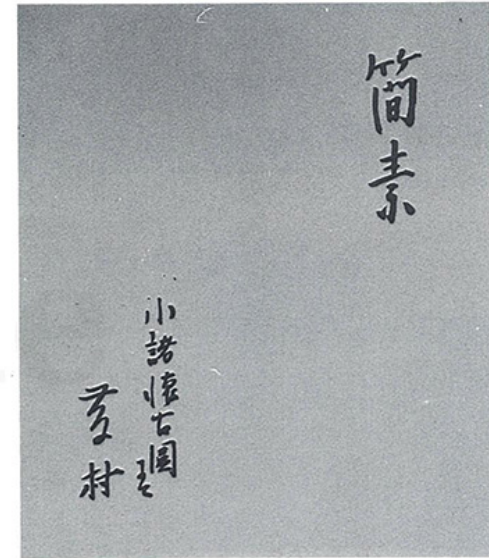 簡素
小諸懐古園にて
藤村